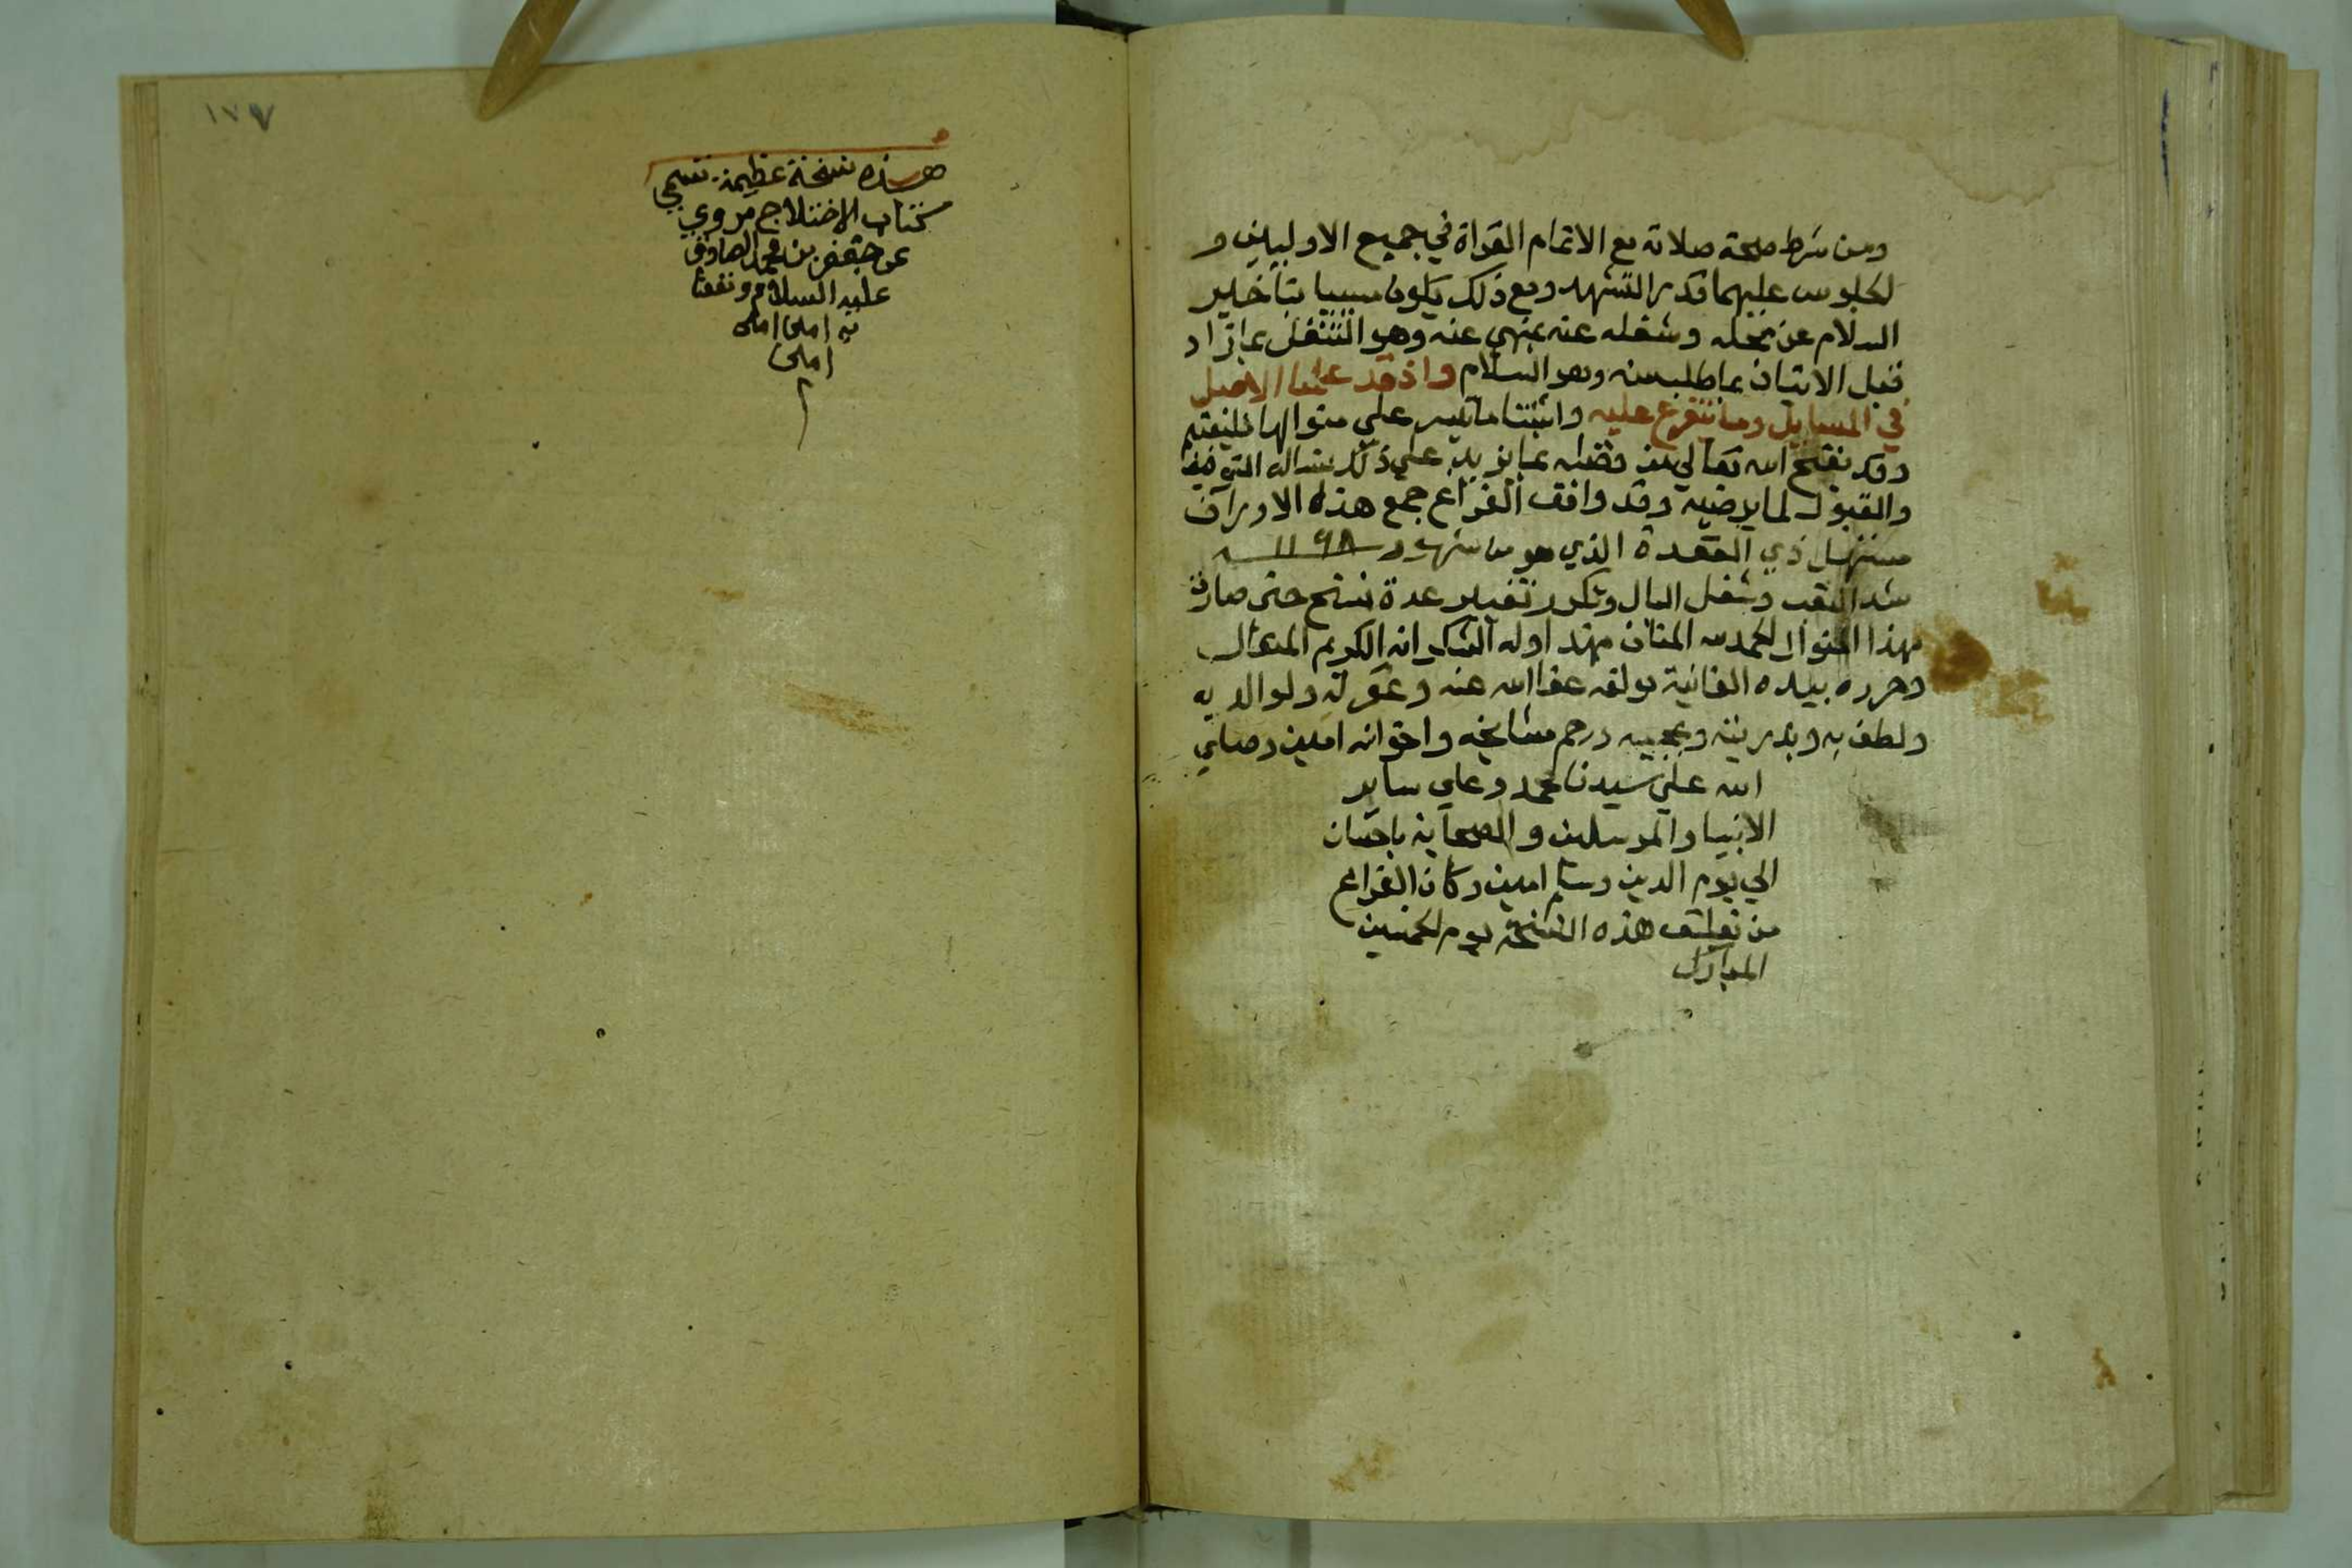 ومن شرط صحة صلاته مع الاتمام القراة في جميع الاوليين و
لجلوس عليهما قدر التشهد ومع ذلك يكون مسيا بتاخير
السلام عن محله وشغله عنه بمنهي عنه وهو التنفل بما زاد
قبل الاتيان بما طلب منه وهو السلام واذ قد علمنا الاصل
في المسايل وما يتفرع عليه واثبتنا ما تيسر علي منوالها فليغتنم
وقد يفتح الله تعالي من فضله بما يزيد علي ذلك نساله التوفيق
والقبول لما يرضيه وقد وافق الفراغ جمع هذه الاوراق
مستهل ذي القعدة الذي هو من شهور ١١٩٨ سنه
التعب وشغل البال وتكرر تغيير عدة نسخ حتى صارت
بهذا المنوال لحمد لله المنان اوله الشكر انه الكريم المتعال
وحرره بيده الفانية مولفه عفا الله عنه وغفر له ولوالديه
ولطف به وبذريته ومحبيه ورحم مشايخه واخوانه امين وصلي
الله علي سيدنا محمد وعلي ساير
الانبيا والمرسلين والصحابة باحسان
الي يوم الدين وسلم امين وكان الفراغ
من تعليق هذه النسخة يوم لخميس
المبارك
١٧٧
هذه نسخة عظيمة تسمي
كتاب الاختلاج مروي
عن جعفر بن محمد الصادق
عليه السلام ونفعنا
به امين امين
امين
م